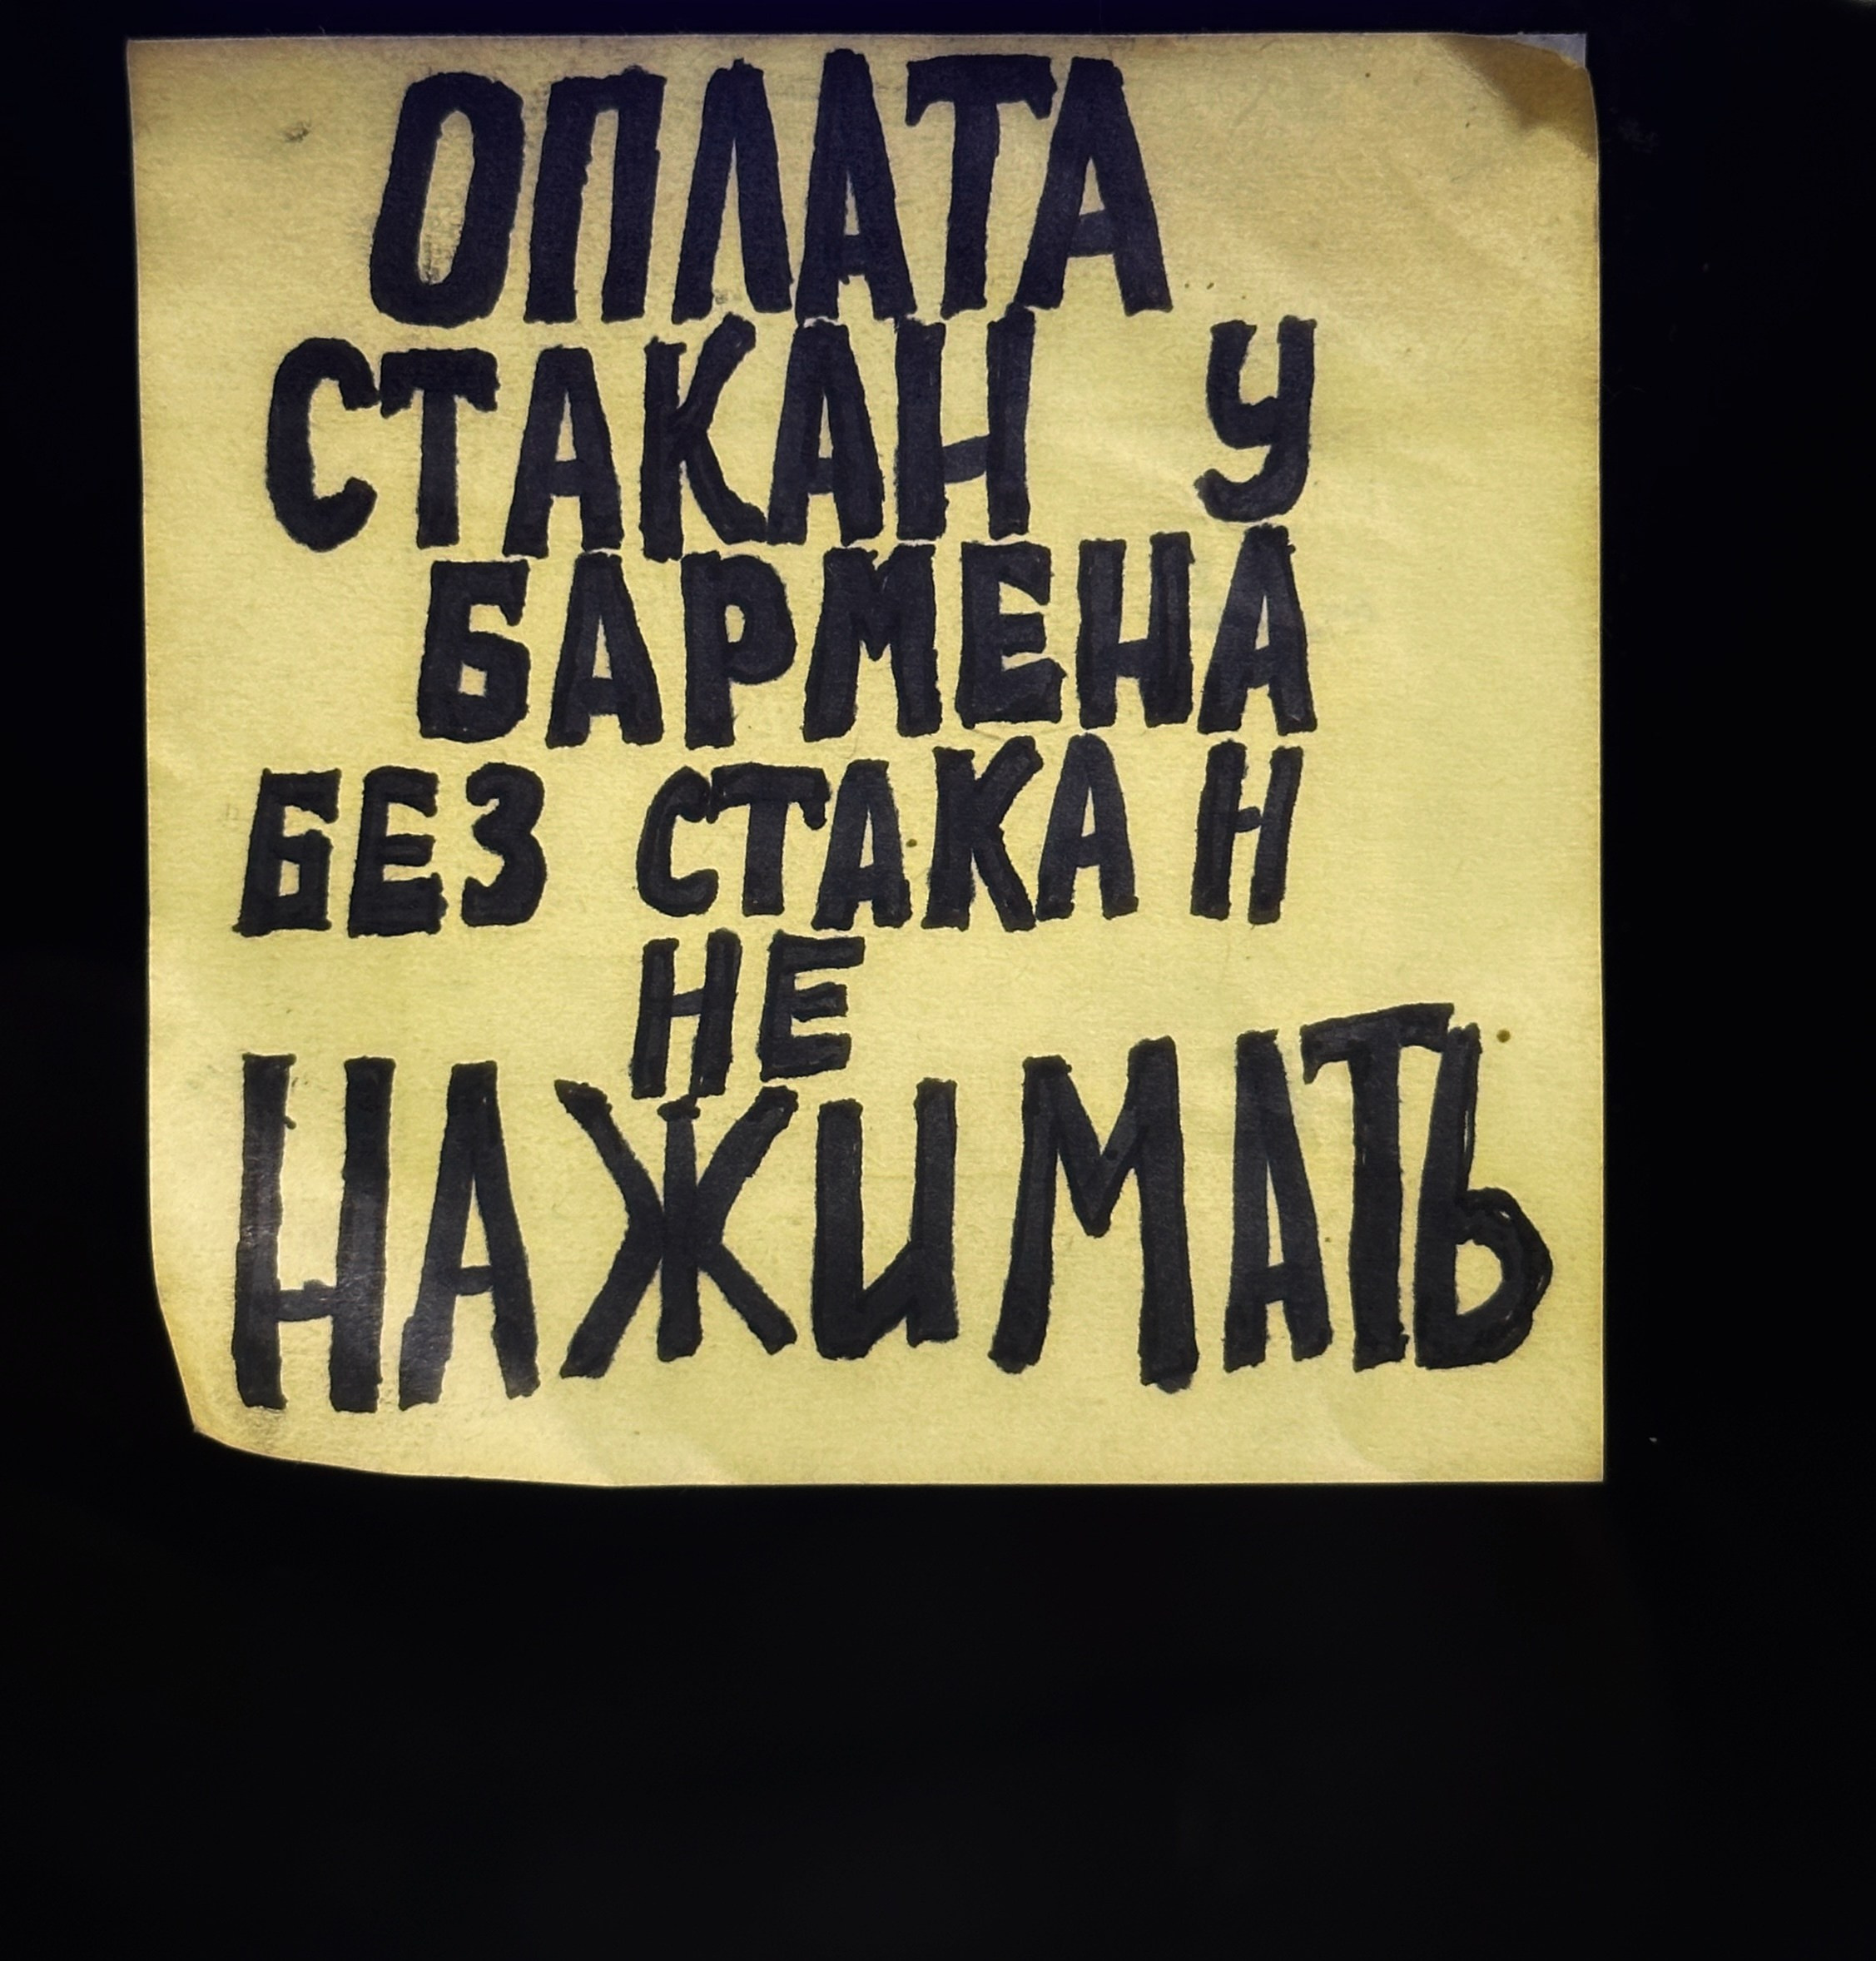 ОПЛАТА
СТАКАН У
БАРМЕНА
БЕЗ СТАКАН
НЕ
НАЖИМАТЬ